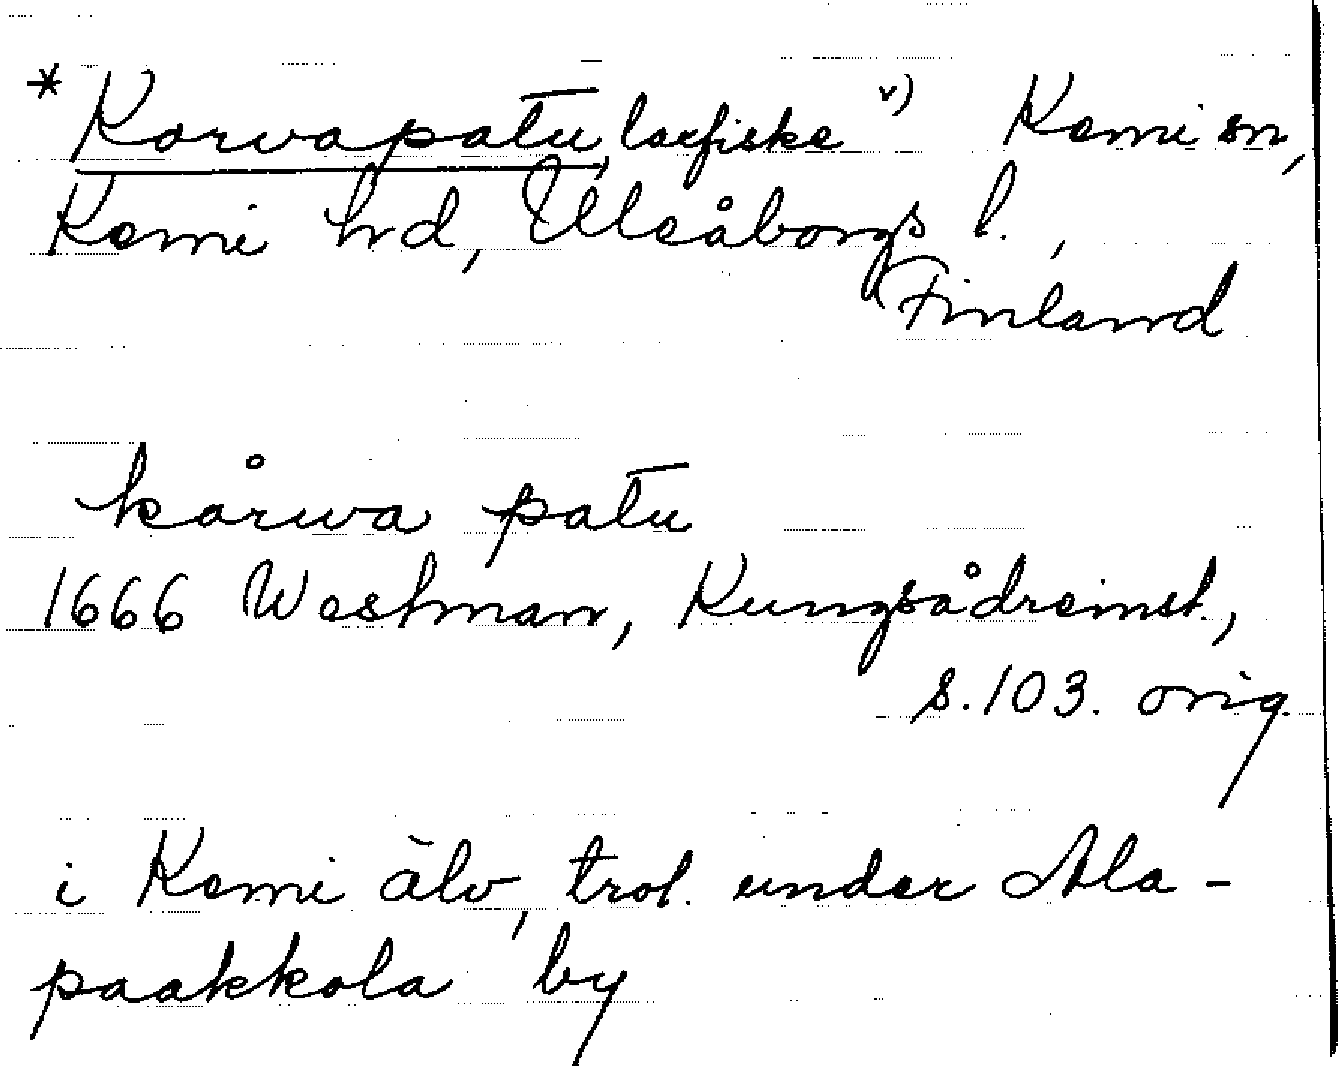 * Korvapatu, laxfiske v) Kemi sn,
Kemi hrd, Uleåborgs l.,
Finland
kårwa patu
1666 Westman, Kungsådreinst.,
s. 103. orig.
i Kemi älv, trol. under Ala-
paakkola by